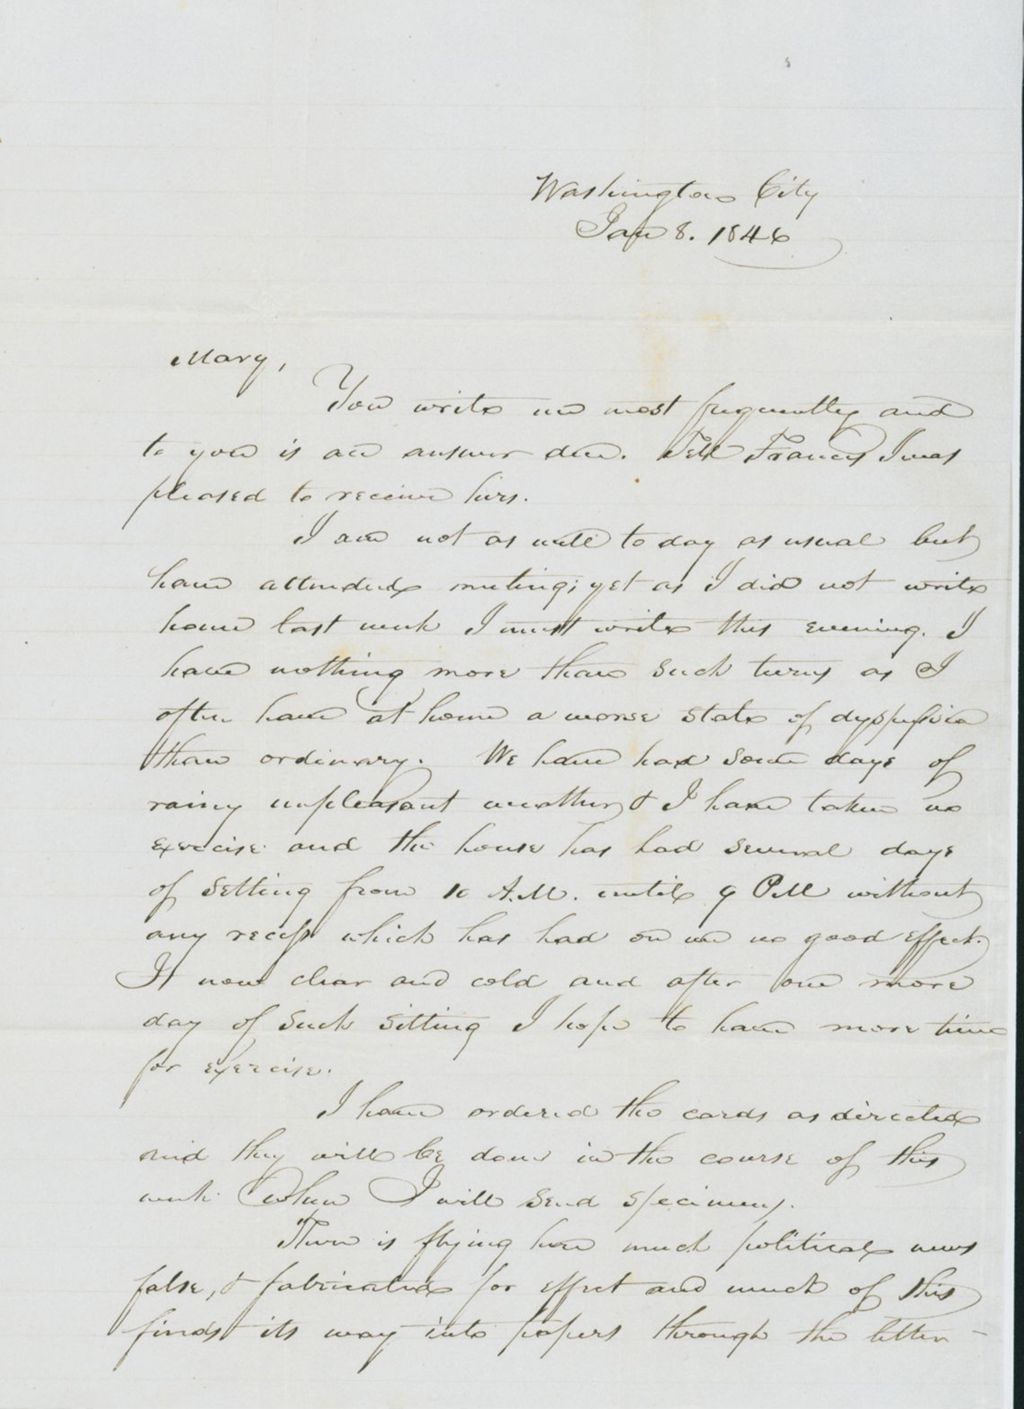 Washington City
Jan 8. 1846
Mary,
You write me most frequently and
to you is an answer due. Tell Frances I was
pleased to receive hers.
I am not as well to day as usual but
have attended meeting; yet as I did not write
home last week I must write this evening. I
have nothing more than such turns as I
often have at home a worse state of dyspepsia
than ordinary. We have had some days of
rainy unpleasant weather & I have taken no
exercise and the house has had several days
of setting from 10 A.M. until 9 P.M without
any recess which has had on me no good effect.
It now clear and cold and after one more
day of such sitting I hope to have more time
for exercise.
I have ordered the cards as directed
and they will be done in the course of this
week when I will send specimens.
There is flying here much political news
false, & fabricated for effect and much of this
finds its way into papers through the letter-